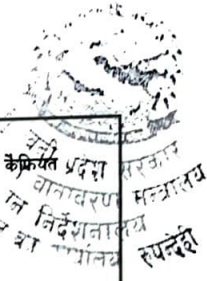 कैफियत
प्रदेश सरकार
वातावरण मन्त्रालय
वन निर्देशनालय
वन का कार्यालय रुपन्देही